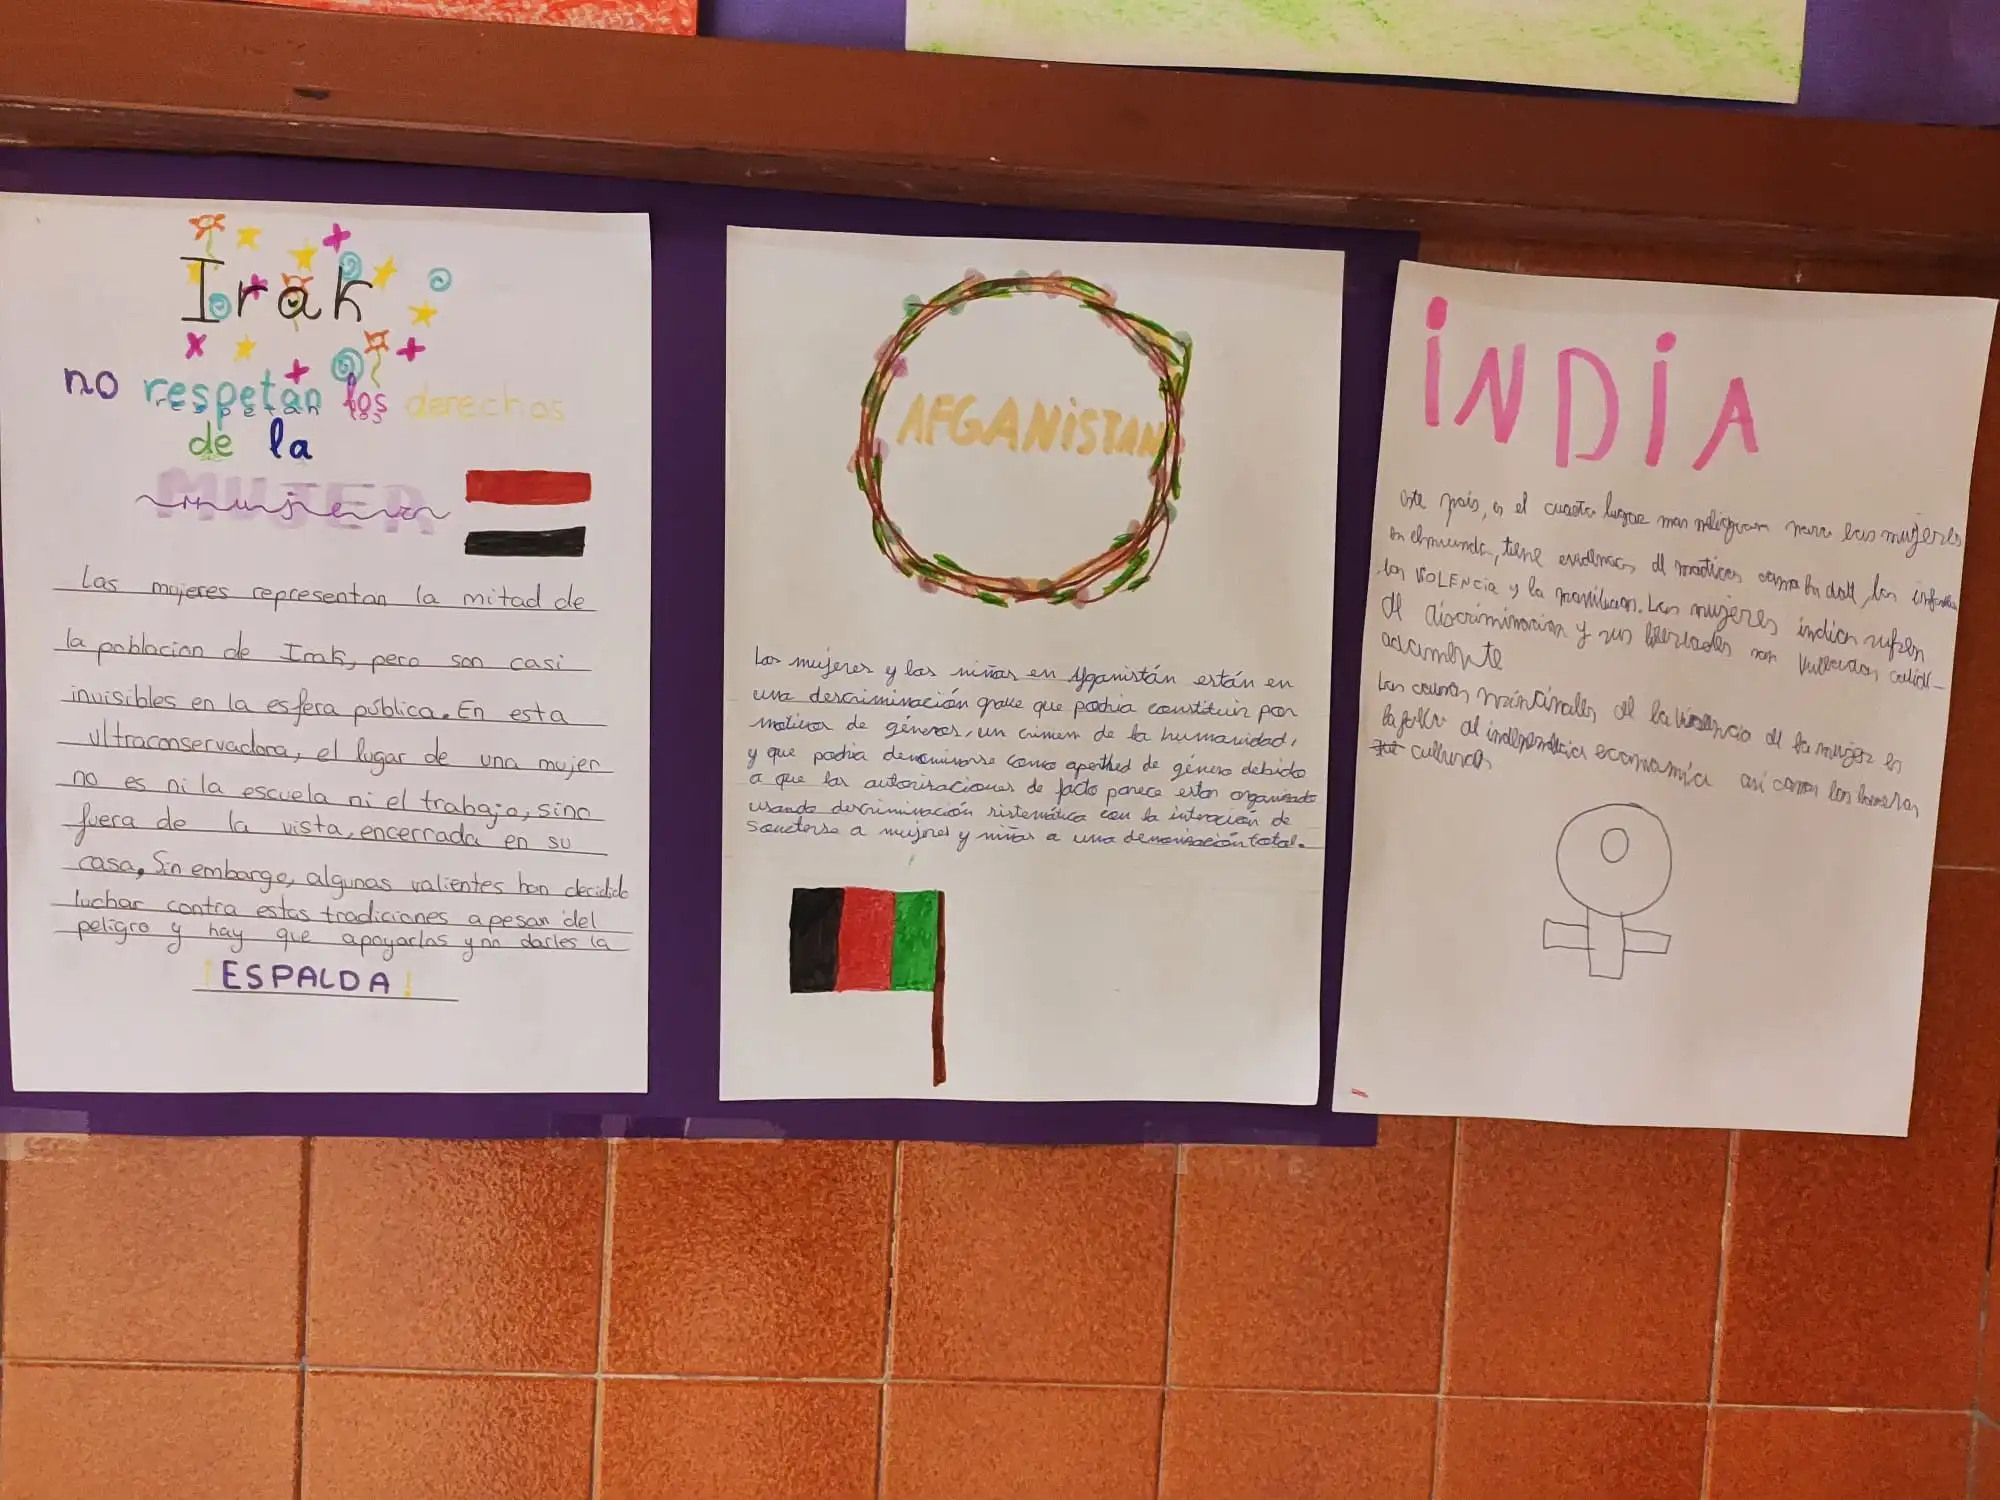 Irak
no respetan los derechos
respetan los
de la
MUJER
mujer
Las mujeres representan la mitad de
la poblacion de Irak, pero son casi
invisibles en la esfera pública. En esta
ultraconservadora, el lugar de una mujer
no es ni la escuela ni el trabajo, sino
fuera de la vista, encerrada en su
casa. Sin embargo, algunas valientes han decidido
luchar contra estas tradiciones apesar del
peligro y hay que apoyarlas y no darles la
¡ESPALDA!
AFGANiSTAN
Las mujeres y las niñas en Afganistán están en
una descriminación grave que podria constituir por
motivos de géneros, un crimen de la humanidad,
y que podria denominarse como apertheid de género debido
a que las autorisaciones de facto parece estar organizado
usando descriminación sistemática con la intención de
someterse a mujeres y niñas a una total.
iNDiA
este país, es el cuarto lugar mas para las mujeres
en el mundo, tiene evidencias de practicas como la dote, los
los VIOLENCIA y la Las mujeres indias sufren
de discriminacion y sus libertades son
adamente
Las causas principales de la violencia de la mujer es
la falta de independencia economica asi como las barreras
culturales